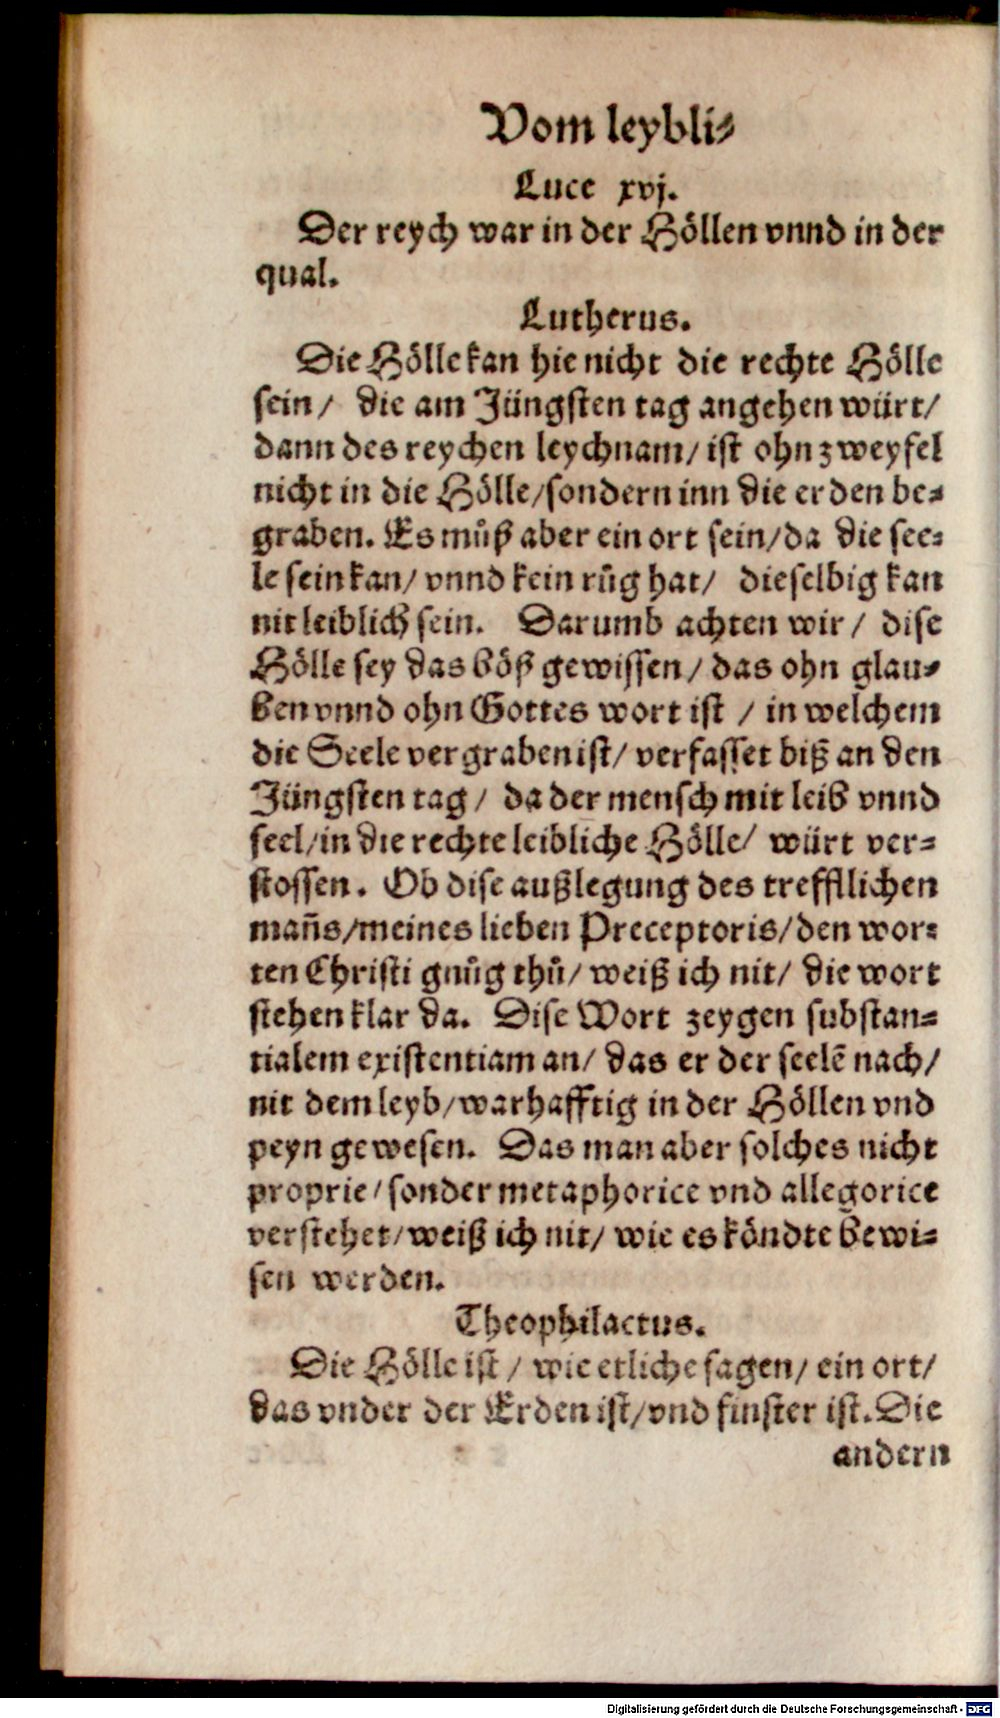 Vom leybli⸗
Luce xvj.
Der reych war in der Höllen vnnd in der
qual.
Lutherus.
Die Hölle kan hie nicht die rechte Hölle
sein/ die am Jüngsten tag angehen würt/
dann des reychen leychnam/ ist ohn zweyfel
nicht in die Hölle/sondern inn die erden be⸗
graben. Es můß aber ein ort sein/da die see⸗
le sein kan/ vnnd kein růg hat/ dieselbig kan
nit leiblich sein. Darumb achten wir/ dise
Hölle sey das böß gewissen/ das ohn glau⸗
ben vnnd ohn Gottes wort ist / in welchem
die Seele vergraben ist/ verfasset biß an den
Jüngsten tag/ da der mensch mit leib vnnd
seel/in die rechte leibliche Hölle/ würt ver⸗
stossen. Ob dise außlegung des trefflichen
mañs/meines lieben Preceptoris/den wor⸗
ten Christi gnůg thů/ weiß ich nit/ die wort
stehen klar da. Dise Wort zeygen substan⸗
tialem existentiam an/ das er der seelē nach/
nit dem leyb/warhafftig in der Höllen vnd
peyn gewesen. Das man aber solches nicht
proprie/sonder metaphorice vnd allegorice
verstehet/weiß ich nit/ wie es köndte bewi⸗
sen werden.
Theophilactus.
Die Hölle ist / wie etliche sagen/ ein ort/
das vnder der Erden ist/vnd finster ist. Die
andern
Digitalisierung gefördert durch die Deutsche Forschungsgemeinschaft - DFG